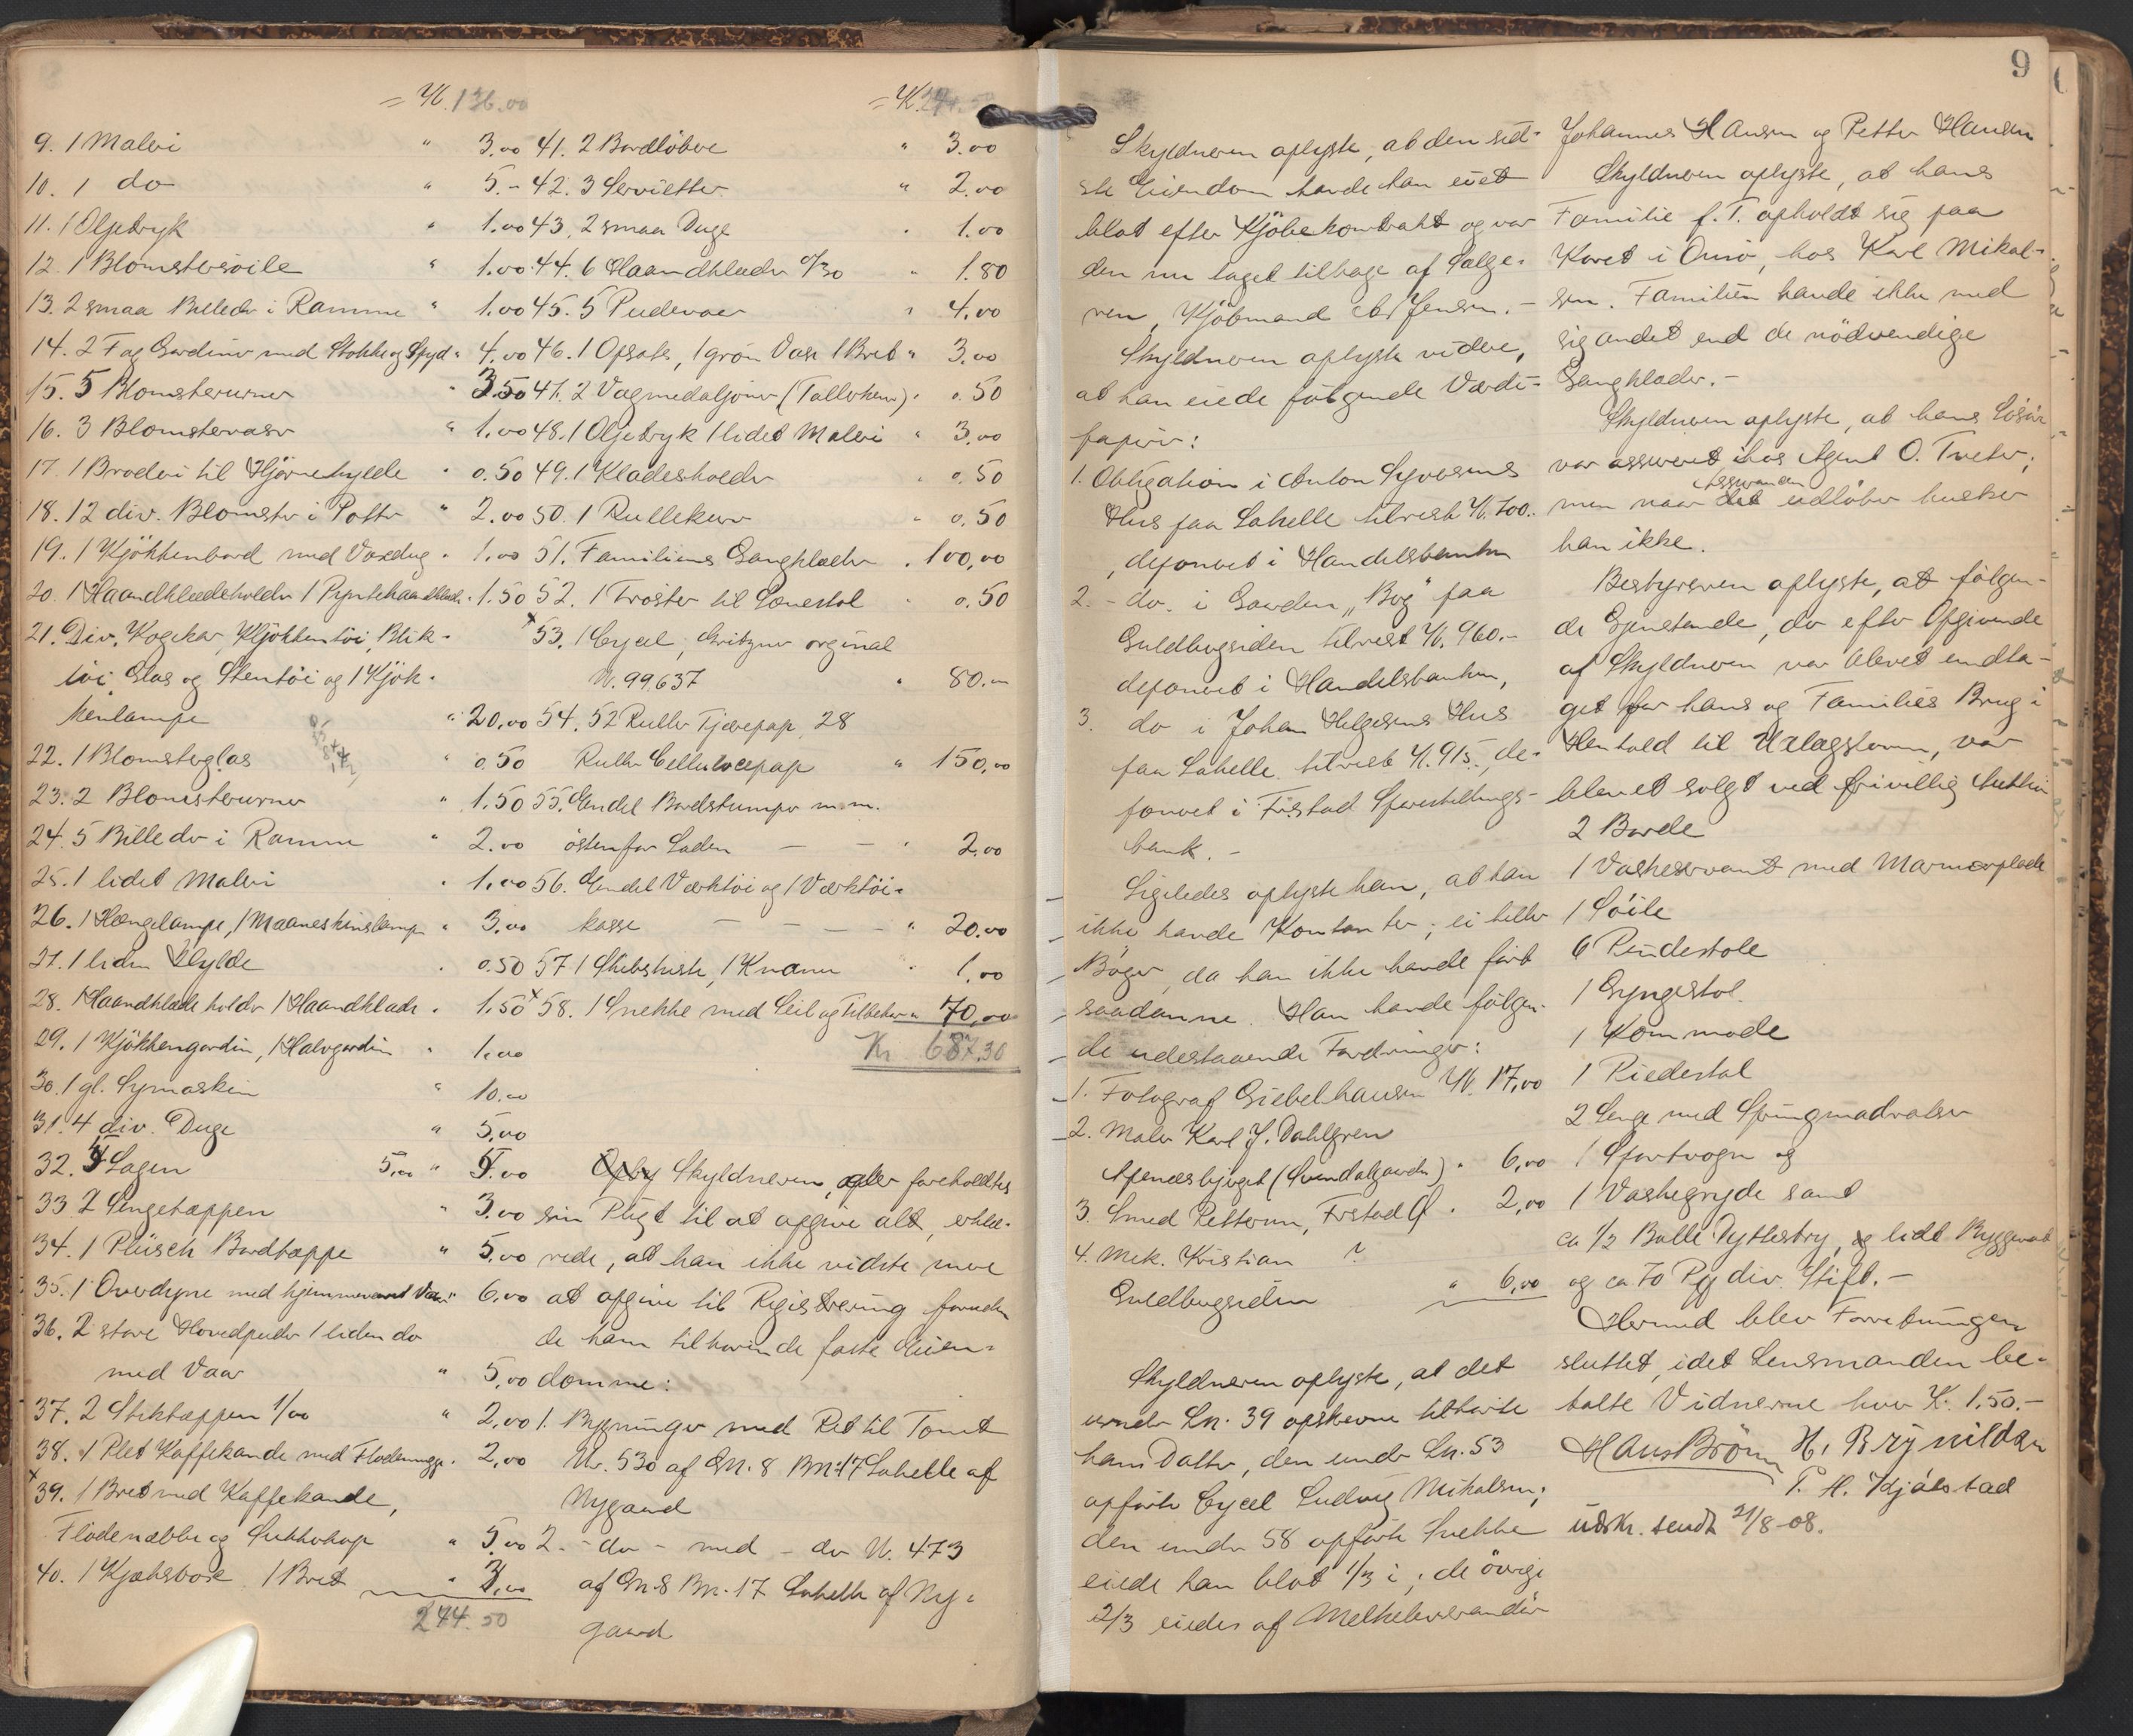 = K. 136.00
9. 1 Maleri " 3.00
10. 1 do " 5.-
11. 1 Oljetryk " 1.00
12. 1 Blomstersöile " 1.00
13. 2 smaa Billeder i Ramme " 1.00
14. 2 Fag Gardiner med Stokke og Spyd " 4.00
15. 5 Blomsterurner " 3.50
16. 3 Blomstervaser " 1.00
17. 1 Broderi til Hjörnehylde " 0.50
18. 12 div. Blomster i Potter " 2.00
19. 1 Kjökkenbord med Voxdug " 1.00
20. 1 Haandklædeholder 1 Pyntehaandklæde " 1.50
21. Div. Kogekar, Kjökkentöi, Blik-
töi, Glas og Stentöi og 1 Kjök-
kenlampe " 20.00
22. 1 Blomsterglas " 0.50
23. 2 Blomsterurner " 1.50
24. 5 Billeder i Ramme " 2.00
25. 1 lidet Maleri " 1.00
26. 1 Hængelampe, 1 Maaneskinslampe " 3.00
27. 1 liden Hylde " 0.50
28. 1 Haandklæde holder 1 Haandklæde " 1.50
29. 1 Kjökkengardin, 1 Halvgardin " 1.00
30. 1 gl. Symaskin " 10.00
31. 4 div. Duge " 5.00
32. Lagen 5.00 "
33 2 Sengetæppen " 3.00
34. 1 Plüsch Bordtæppe " 5.00
35. 1 Overdyne med hjemmevævet Vaar " 6.00
36. 2 store Hovedpuder 1 liden do
med Vaar " 5.00
37. 2 Stiktæppen 1/00 " 2.00
38. 1 Plet Kaffekande med Flödemugge " 2.00
x 39. 1 Bret med Kaffekande,
Flödenæbbe og Sukkerkop " 5.00
40. 1 Kjæksbox 1 Bret "
244.50
= K. 244.50
41. 2 Bordlöbere " 3.00
42. 3 Servietter " 2.00
43. 2 smaa Duge " 1.00
44. 6 Haandklæder 0/30 " 1.80
45. 5 Pudevaer " 4.00
46. 1 Opsats, 1 grön Vase 1 Bret " 3.00
47. 2 Vægmedaljoner (Tallerkener) " 0.50
48. 1 Oljetryk 1 lidet Maleri " 3.00
49. 1 Klædesholder " 0.50
50. 1 Rullekurv " 0.50
51. Familiens Gangklæder " 100,00
52. 1 Troster til Lænestol " 0.50
x 53. 1 Cycel, Gritzner orginal
N. 99637 " 80.-
54. 52 Ruller Tjærepap, 28
Ruller Cellulocepap " 150,00
55. Endel Bordstumper m.m.
östenfor Laden — — " 2.00
56. Endel Værktöi og 1 Værktöi-
kasse — — — — " 20.00
57 1 Skibskiste, 1 Kran " 1.00
x 58. 1 Snekke med Seil og Tilbehør " 70,00
Kr. 687.30
Skyldneren, der foreholdtes
sin Pligt til at opgive alt, erklæ-
rede, at han ikke vidste mere
at opgive til Registrering foruden
de ham tilhörende faste Eien-
domme:
1. Bygninger med Ret til Tomt
Nr. 530 af Gn. 8 Bn. 17 Labelle af
Nygaard
2. - do - med - do N. 473
af Gn. 8 Bn. 17 Labelle af Ny-
gaard
9
Skyldneren oplyste, at den sid-
ste Eiendom havde han eiet
blot efter Kjöbekontrakt og var
den nu taget tilbage af Sælge-
ren, Kjöbmand Jensen. -
Skyldneren oplyste videre,
at han eiede fölgende Værdi-
papirer:
1. Obligation i Anton Syversens
Hus paa Labelle tilrest K. 700.
, deponeret i Handelsbanken
2. - do. i Gaarden "Bog" paa
Guldbergsiden tilrest K. 960.-
deponeret i Handelsbanken,
3. do i Johan Helgesens Hus
paa Labelle tilrest K. 915.-, de-
poneret i Fr.stad Sparestillings-
bank. -
Ligeledes oplyste han, at han
ikke havde Kontanter; ei heller
Böger, da han ikke havde fört
saadanne. Han havde fölgen-
de udestaaende Fordringer:
1. Fotograf Giebelhausen K. 17,00
2. Maler Karl J. Dahlgren
(Svendalgaarden) " 6,00
3. Smed Petterson, Fr.stad " 2,00
4. Mek. Kristian ?
Guldbergsiden " 6,00
Skyldneren oplyste, at det
under Ln. 39 opskrevne tilhörte
hans Datter, den under Ln. 53
opförte Cycel Ludvig Mikalsen;
den under 58 opförte Snekke
eiede han blot 1/3 i; de övrige
2/3 eiedes af
Johannes Hansen og Petter Hansen
Skyldneren oplyste, at hans
Familie f. T. opholdt sig paa
i Onsö, hos Karl Mikal-
sen. Familien havde ikke med
sig andet end de nödvendige
Gangklæder. -
Skyldneren oplyste, at hans Lösöre
var assureret hos Agent O. Tveter;
men naar Assurancen udlöber husker
han ikke.
Bestyreren oplyste, at fölgen-
de Gjenstande, der efter Opgivende
af Skyldneren var blevet undta-
get for hans og Families Brug i
Henhold til Udlægsloven, var
blevet solgt ved frivillig Auktion
2 Borde
1 Vaskeservant med Marmorplade
1 Söile
6 Pindestole
1 Gyngestol
1 Kommode
1 Piedestal
2 Senge med Springmadrasser
1 Sportvogn og
1 Vaskegryde samt
ca 1/2 Balle Dyttestry, og lidt
og ca 70 div. Stift. -
Hermed blev Forretningen
sluttet, idet Lensmanden be-
talte Vidnerne hver K. 1.50.-
Hans Brönn H. Brynildsen
P. H. Kjölstad
udskr. sendt 21/8-08.